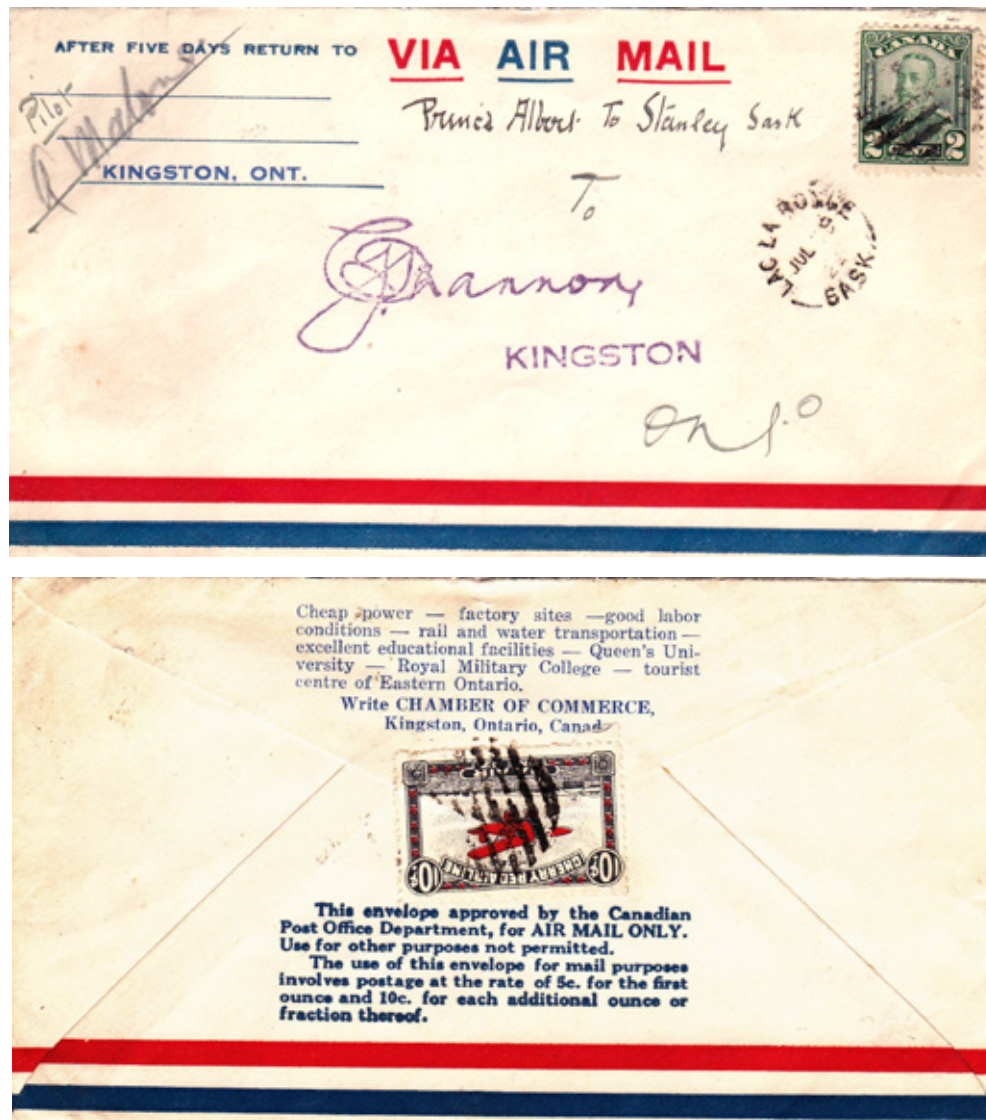 AFTER FIVE DAYS RETURN TO
VIA AIR MAIL
CANADA
2 2
Pilot
Prince Albert To Stanley Sask
KINGSTON, ONT.
To
LAC LA RONGE
JUL
SASK.
Shannon,
KINGSTON
Ont.o
Cheap power — factory sites —good labor
conditions — rail and water transportation —
excellent educational facilities — Queen's Uni-
versity — Royal Military College — tourist
centre of Eastern Ontario.
Write CHAMBER OF COMMERCE,
Kingston, Ontario, Canad
10¢ CHERRY RED AIRLINE 10¢
This envelope approved by the Canadian
Post Office Department, for AIR MAIL ONLY.
Use for other purposes not permitted.
The use of this envelope for mail purposes
involves postage at the rate of 5c. for the first
ounce and 10c. for each additional ounce or
fraction thereof.